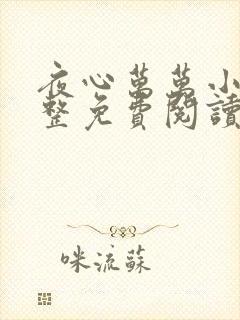 夜心萬萬小
整免費閱讀
咪流蘇